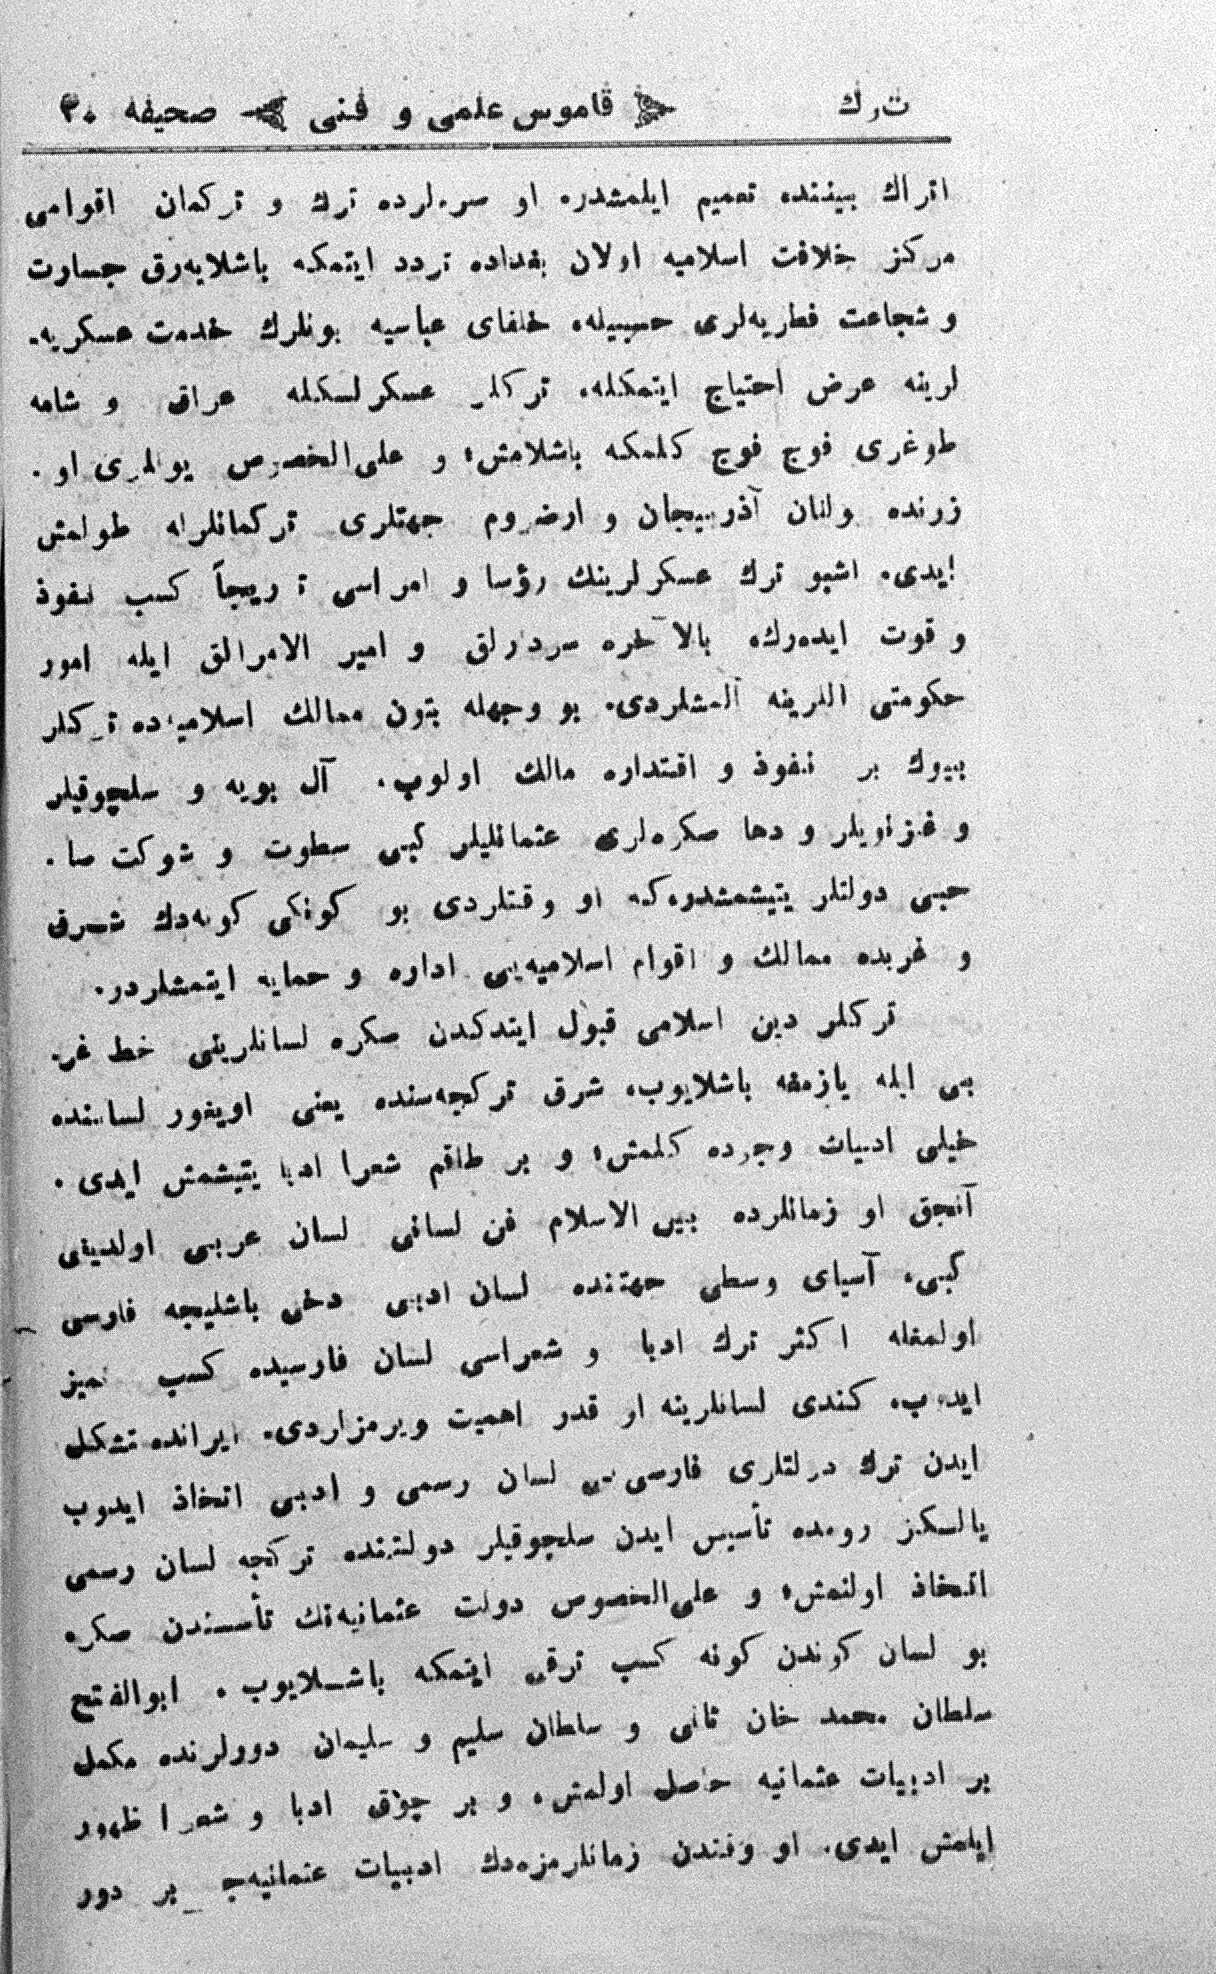 ت رك قاموس علمی و فنی صحیفه ٣٠
اتراك بیننده تعمیم ایلمشدر. او سره‌لرده ترك و تركمان اقوامی
مركز خلافت اسلامیه اولان بغداده تردد ایتمكه باشلایه‌رق جسارت
و شجاعت فطریه‌لری حسبیله، خلفای عباسیه بونلرك خدمت عسكریه‌
لرینه عرض احتیاج ایتمكله، تركلر عسكرلسكله عراق و شامه
طوغری فوج فوج كلمكه باشلامش؛ و علی‌الخصوص یوللری او .
زرنده ولنان آذربیجان و ارضروم جهتلری تركمانلرله طولمش
ایدی. اشبو ترك عسكرلرینك رؤسا و امراسی تدریجاً كسب نفوذ
و قوت ایده‌رك، بالآخره سردارلق و امیر الامرالق ایله امور
حكومتی اللرینه آلمشلردی. بو وجهله بتون ممالك اسلامیه‌ده تركلر
بیوك بر نفوذ و اقتداره مالك اولوب، آل بویه و سلچوقیلر
و غزنویلر و دها صكره‌لری عثمانلیلر كبی سطوت و شوكت صا .
حبی دولتلر یتیشمشدره‌كه او وقتلردی بو كونكی كونه‌دك شرق
و غربده ممالك و اقوام اسلامیه‌یی اداره و حمایه ایتمشلردر.
تركلر دین اسلامی قبول ایتدكدن صكره لسانلرینی خط عر.
بی ایله یازمغه باشلایوب، شرق تركجه‌سنده یعنی اویغور لساننده
خیلی ادبیات وجوده كلمش؛ و بر طاقم شعرا ادبا یتیشمش ایدی .
آنجق او زمانلرده بین الاسلام فن لسانی لسان عربی اولدیغی
كبی، آسیای وسطی جهتنده لسان ادبی دخی باشلیجه فارسی
اولمغله اكثر ترك ادبا و شعراسی لسان فارسیده كسب تمیز
ایدوب، كندی لسانلرینه او قدر اهمیت ویرمزاردی. ایرانده تشكل
ایدن ترك دولتلری فارسی‌یی لسان رسمی و ادبی اتخاذ ایدوب
یالسكز رومده تأسیس ایدن سلجوقیلر دولتنده تركجه لسان رسمی
اتخاذ اولنمش؛ و علی‌الخصوص دولت عثمانیه‌نك تأسسندن صكره
بو لسان كوندن كونه كسب ترقی ایتمكه باشلایوب . ابوالفتح
سلطان محمد خان ثانی و سلطان سلیم و سلیمان دوولرنده مكمل
بر ادبیات عثمانیه حاصل اولمش، و بر چوق ادبا و شعرا ظهور
ایلمش ایدی. او وقتدن زمانلرمزه‌دك ادبیات عثمانیه‌جه بر دور